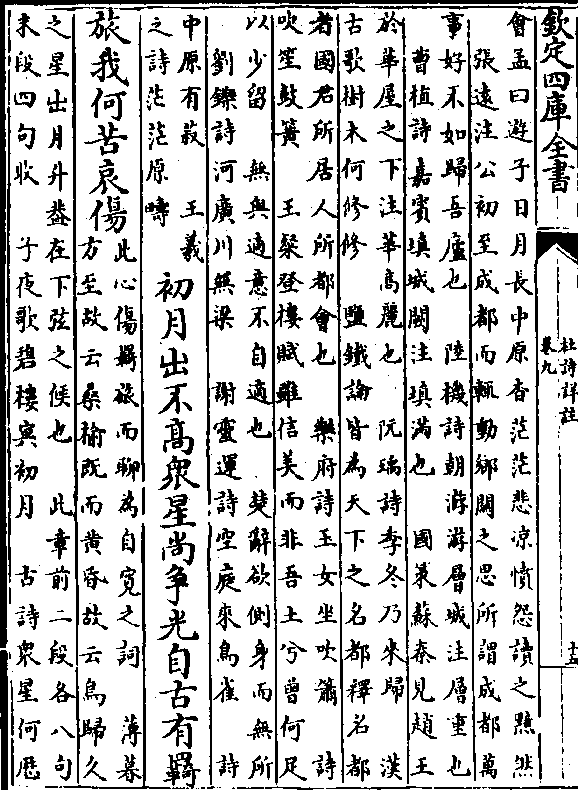 欽定四庫全書
杜詩詳註
卷九
十五
會孟曰遊子日月長中原杳茫茫悲凉憤怨讀之黯然
張遠注公初至成都而輒動鄉關之思所謂成都萬
事好不如歸吾廬也 陸機詩朝游游層城注層重也
曹植詩嘉賓填城闕注填滿也 國策蘇秦見趙王
於華屋之下注華高麗也 阮瑀詩季冬乃來歸 漢
古歌樹木何修修 鹽鐵論皆為天下之名都釋名都
者國君所居人所都會也 樂府詩玉女坐吹簫 詩
吹笙鼓簧 王粲登樓賦雖信美而非吾土兮曾何足
以少留 無與適意不自適也 楚辭欲側身而無所
劉鑠詩河廣川無梁 謝靈運詩空庭來鳥雀 詩
中原有菽 王羲
之詩茫茫原疇
初月出不高衆星尚爭光自古有羈
旅我何苦哀傷
此心傷羈旅而聊為自寬之詞 薄暮
方至故云桑榆既而黄昏故云鳥歸久
之星出月升葢在下弦之候也 此章前二段各八句
末段四句收 子夜歌碧樓冥初月 古詩衆星何歴